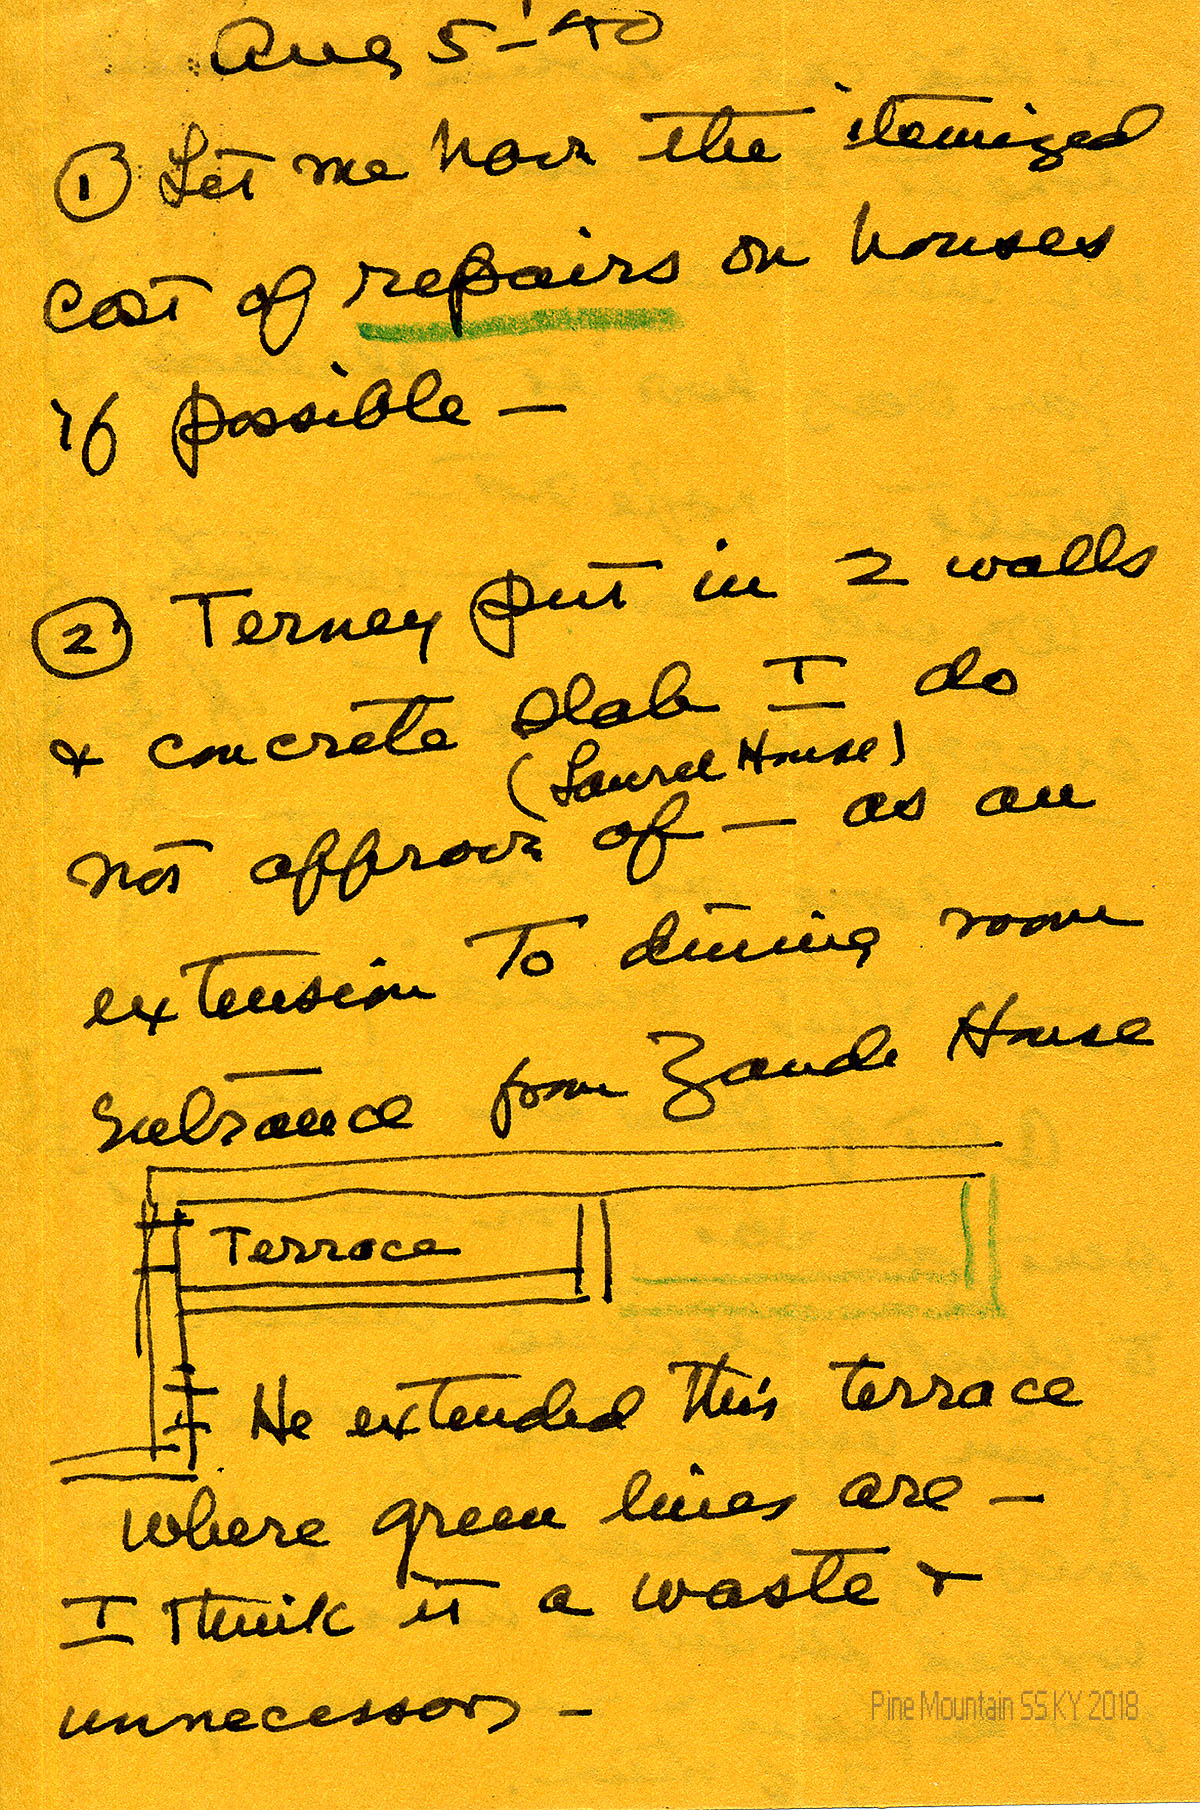 Aug 5-'40
① Let me have the itemized
cost of repairs on houses
if possible —
② Terney put in 2 walls
& concrete slab I do
(Laurel House)
not approve of — as an
extension to dining room
entrance from Zande House
Terrace
He extended this terrace
where green lines are —
I think it a waste &
unnecessary —
Pine Mountain SS KY 2018